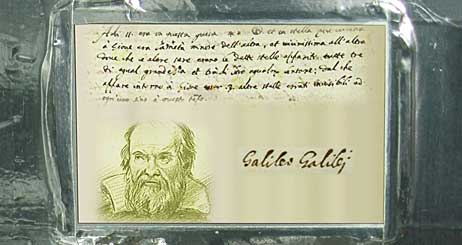 Adì 11. era in questa guisa et la stella più vicina
à Giove era la metà minore dell'altra, et vicinissima all'altra
dove che le altre sere erano le dette stelle apparite tutte tre
di equal grandezza et trà di loro equalmente lontane; dal che
appare intorno à Giove esser 3. altre stelle erranti invisibili ad
ogn'uno sino à questo tempo.
Galileo Galilej